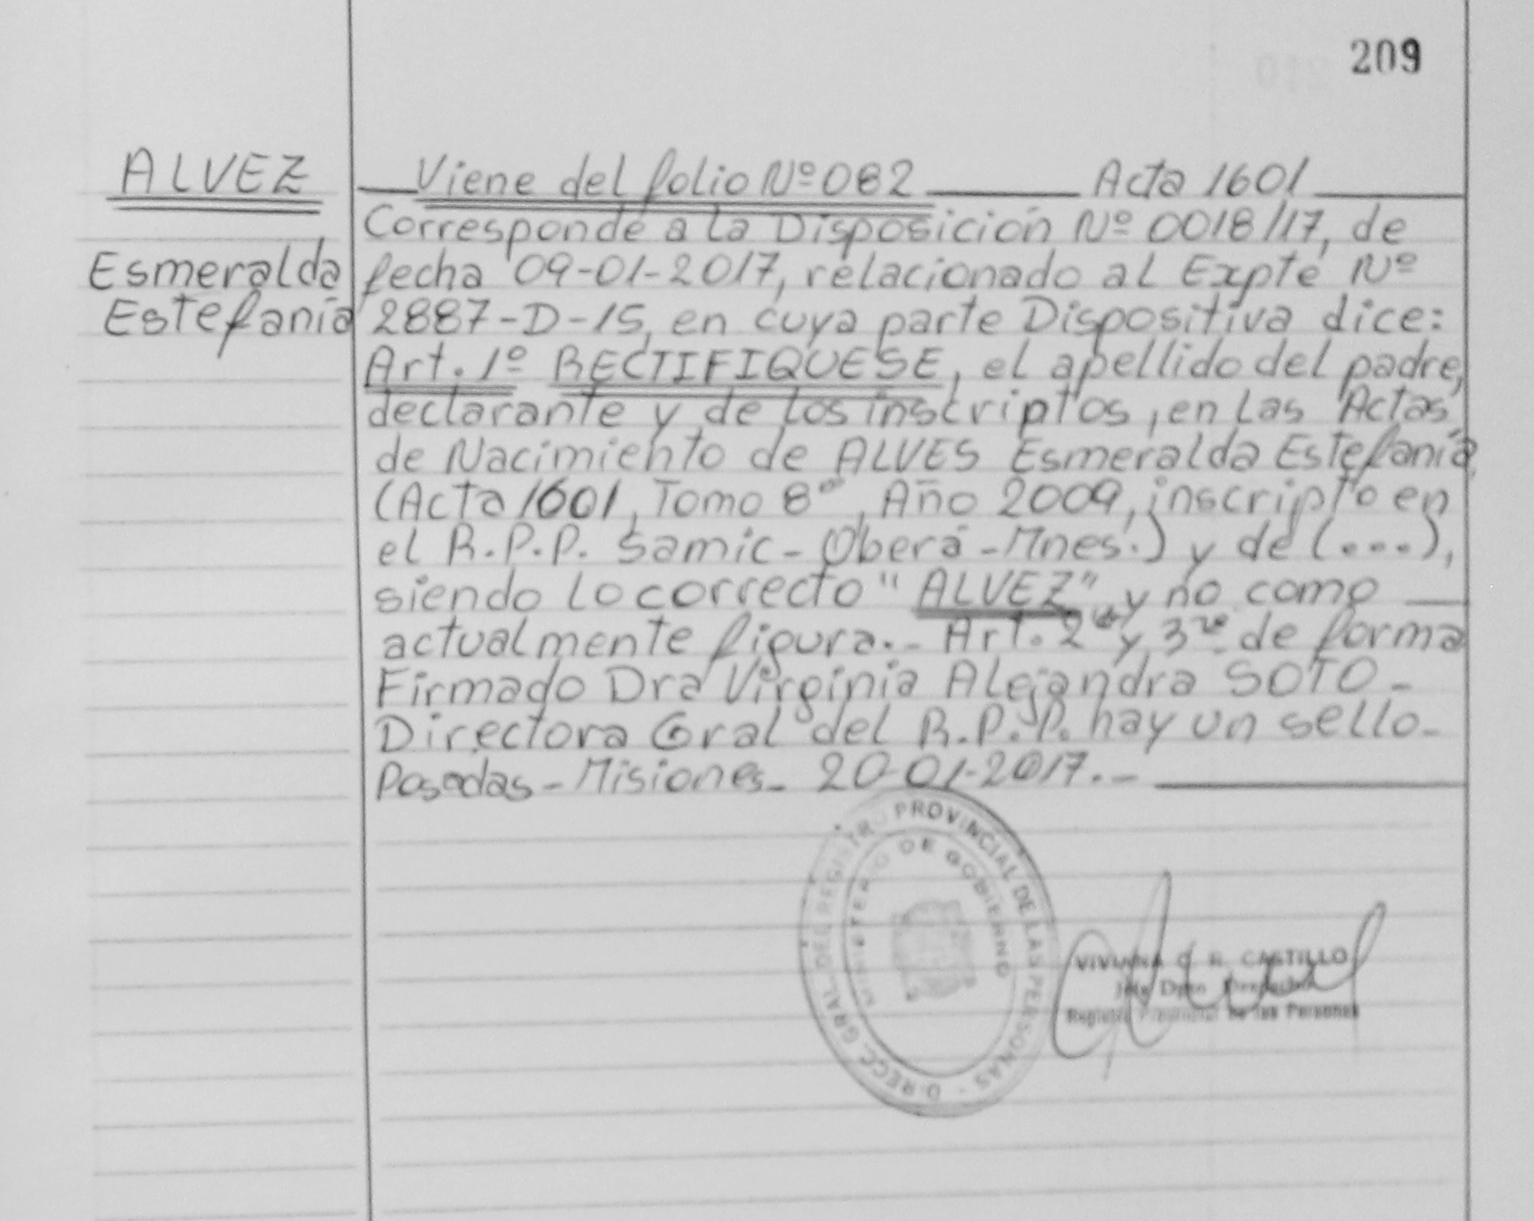 209
ALVEZ
Esmeralda
Estefanía
Viene del folio Nº 082 Acta 1601
Corresponde a la Disposición Nº 0018/17, de
fecha 09-01-2017, relacionado al Expte Nº
2887-D-15, en cuya parte Dispositiva dice:
Art. 1º RECTIFIQUESE, el apellido del padre,
declarante y de los inscriptos, en las Actas
de Nacimiento de ALVES Esmeralda Estefanía
(Acta 1601, Tomo 8º, Año 2009, inscripto en
el R.P.P. Samic-Oberá-Mnes.) y de (....),
siendo lo correcto "ALVEZ" y no como
actualmente figura.- Art. 2 y 3 de forma
Firmado Dra Virginia Alejandra SOTO-
Directora Gral del R.P.P. hay un sello-
Posadas-Misiones- 20-01-2017.-
DIRECC. GRAL. DEL REGISTRO PROVINCIAL DE LAS PERSONAS -
MINISTERIO DE GOBIERNO
VIVIANA R. CASTILLO
Registro Provincial de las Personas